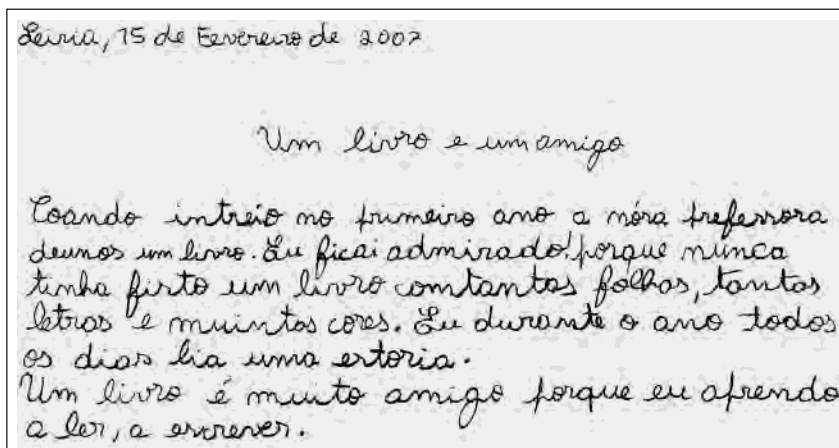 Leiria, 15 de Fevereiro de 2007
Um livro e um amigo
Coando intreio no primeiro ano a nóra prefessora
deunos um livro. Eu ficai admirado! porque nunca
tinha fisto um livro comtantas folhas, tantas
letras e muintas cores. Eu durante o ano todos
os dias lia uma estoria.
Um livro é muito amigo porque eu aprendo
a ler, a escrever.